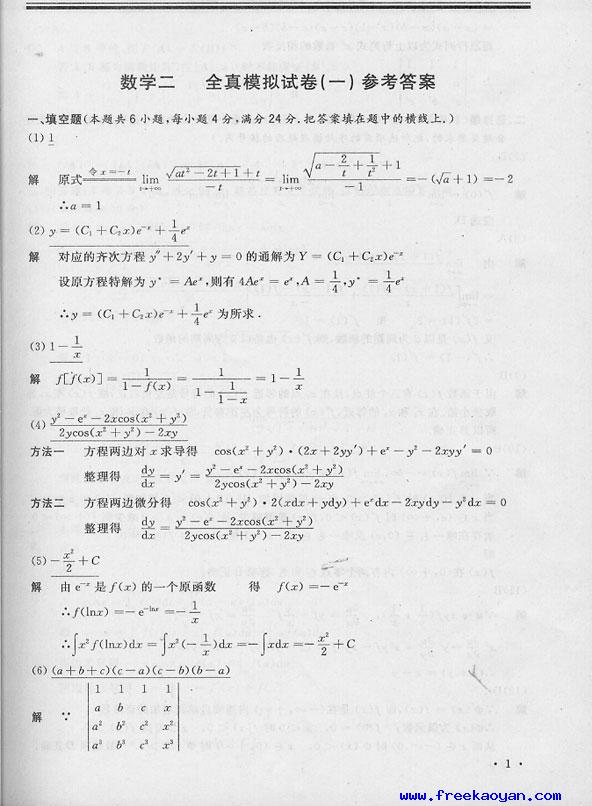 数学二 全真模拟试卷(一)参考答案
一、填空题(本题共 6 小题,每小题 4 分,满分 24 分.把答案填在题中的横线上.)
(1) 1
解 原式 \xlongequal{令 x=-t} \lim_{t→+∞} \frac{\sqrt{at²-2t+1}+t}{-t} = \lim_{t→+∞} \frac{\sqrt{a-\frac{2}{t}+\frac{1}{t²}}+1}{-1} = -(\sqrt{a}+1) = -2
∴a = 1
(2) y = (C₁ + C₂x)e^{-x} + \frac{1}{4}e^{x}
解 对应的齐次方程 y″ + 2y′ + y = 0 的通解为 Y = (C₁ + C₂x)e^{-x}
设原方程特解为 y* = Ae^{x},则有 4Ae^{x} = e^{x}, A = \frac{1}{4}, y* = \frac{1}{4}e^{x}
∴y = (C₁ + C₂x)e^{-x} + \frac{1}{4}e^{x} 为所求.
(3) 1 - \frac{1}{x}
解 f[f(x)] = \frac{1}{1-f(x)} = \frac{1}{1-\frac{1}{1-x}} = 1 - \frac{1}{x}
(4) \frac{y²-e^{x}-2xcos(x²+y²)}{2ycos(x²+y²)-2xy}
方法一 方程两边对 x 求导得 cos(x²+y²)·(2x+2yy′)+e^{x}-y²-2xyy′ = 0
整理得 \frac{dy}{dx} = y′ = \frac{y²-e^{x}-2xcos(x²+y²)}{2ycos(x²+y²)-2xy}
方法二 方程两边微分得 cos(x²+y²)·2(xdx+ydy)+e^{x}dx-2xydy-y²dx = 0
整理得 \frac{dy}{dx} = \frac{y²-e^{x}-2xcos(x²+y²)}{2ycos(x²+y²)-2xy}
(5) -\frac{x²}{2}+C
解 由 e^{-x} 是 f(x) 的一个原函数 得 f(x) = -e^{-x}
∴f(lnx) = -e^{-lnx} = -\frac{1}{x}
∴∫x²f(lnx)dx = ∫x²(-\frac{1}{x})dx = -∫xdx = -\frac{x²}{2}+C
(6) (a+b+c)(c-a)(c-b)(b-a)
解 ∵ | 1 1 1 1 |
| a b c x |
| a² b² c² x² |
| a³ b³ c³ x³ |
· 1 ·
www.freekaoyan.com